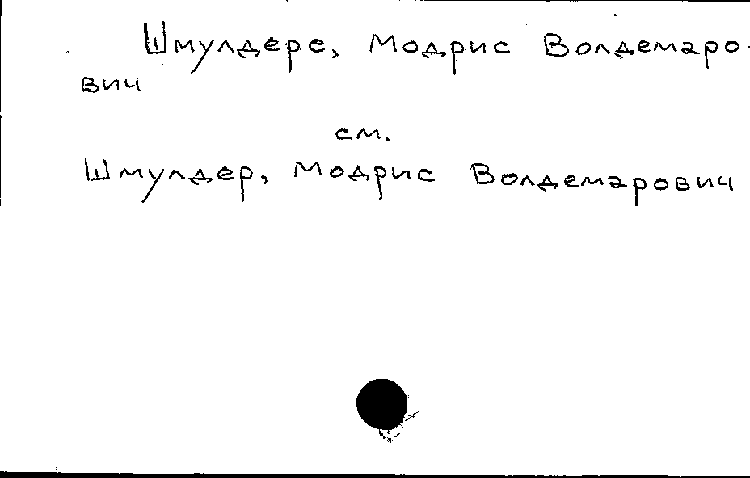 Шмулдерс, Модрис Волдемаро-
вич
см.
Шмулдер, Модрис Волдемарович